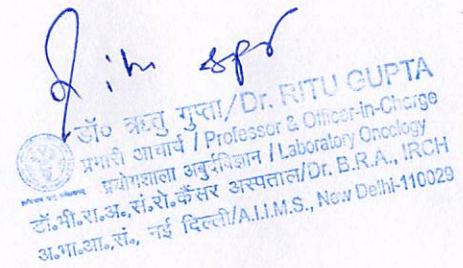 डॉ० ऋतु गुप्ता/Dr. RITU GUPTA
प्रभारी आचार्य / Professor & Officer-in-Charge
प्रयोगशाला अबुर्दविज्ञान / Laboratory Oncology
डॉ.भी.रा.अ.,सं.रो.कैंसर अस्पताल/Dr. B.R.A., IRCH
अ.भा.आ.,सं., नई दिल्ली/A.I.I.M.S., New Delhi-110029